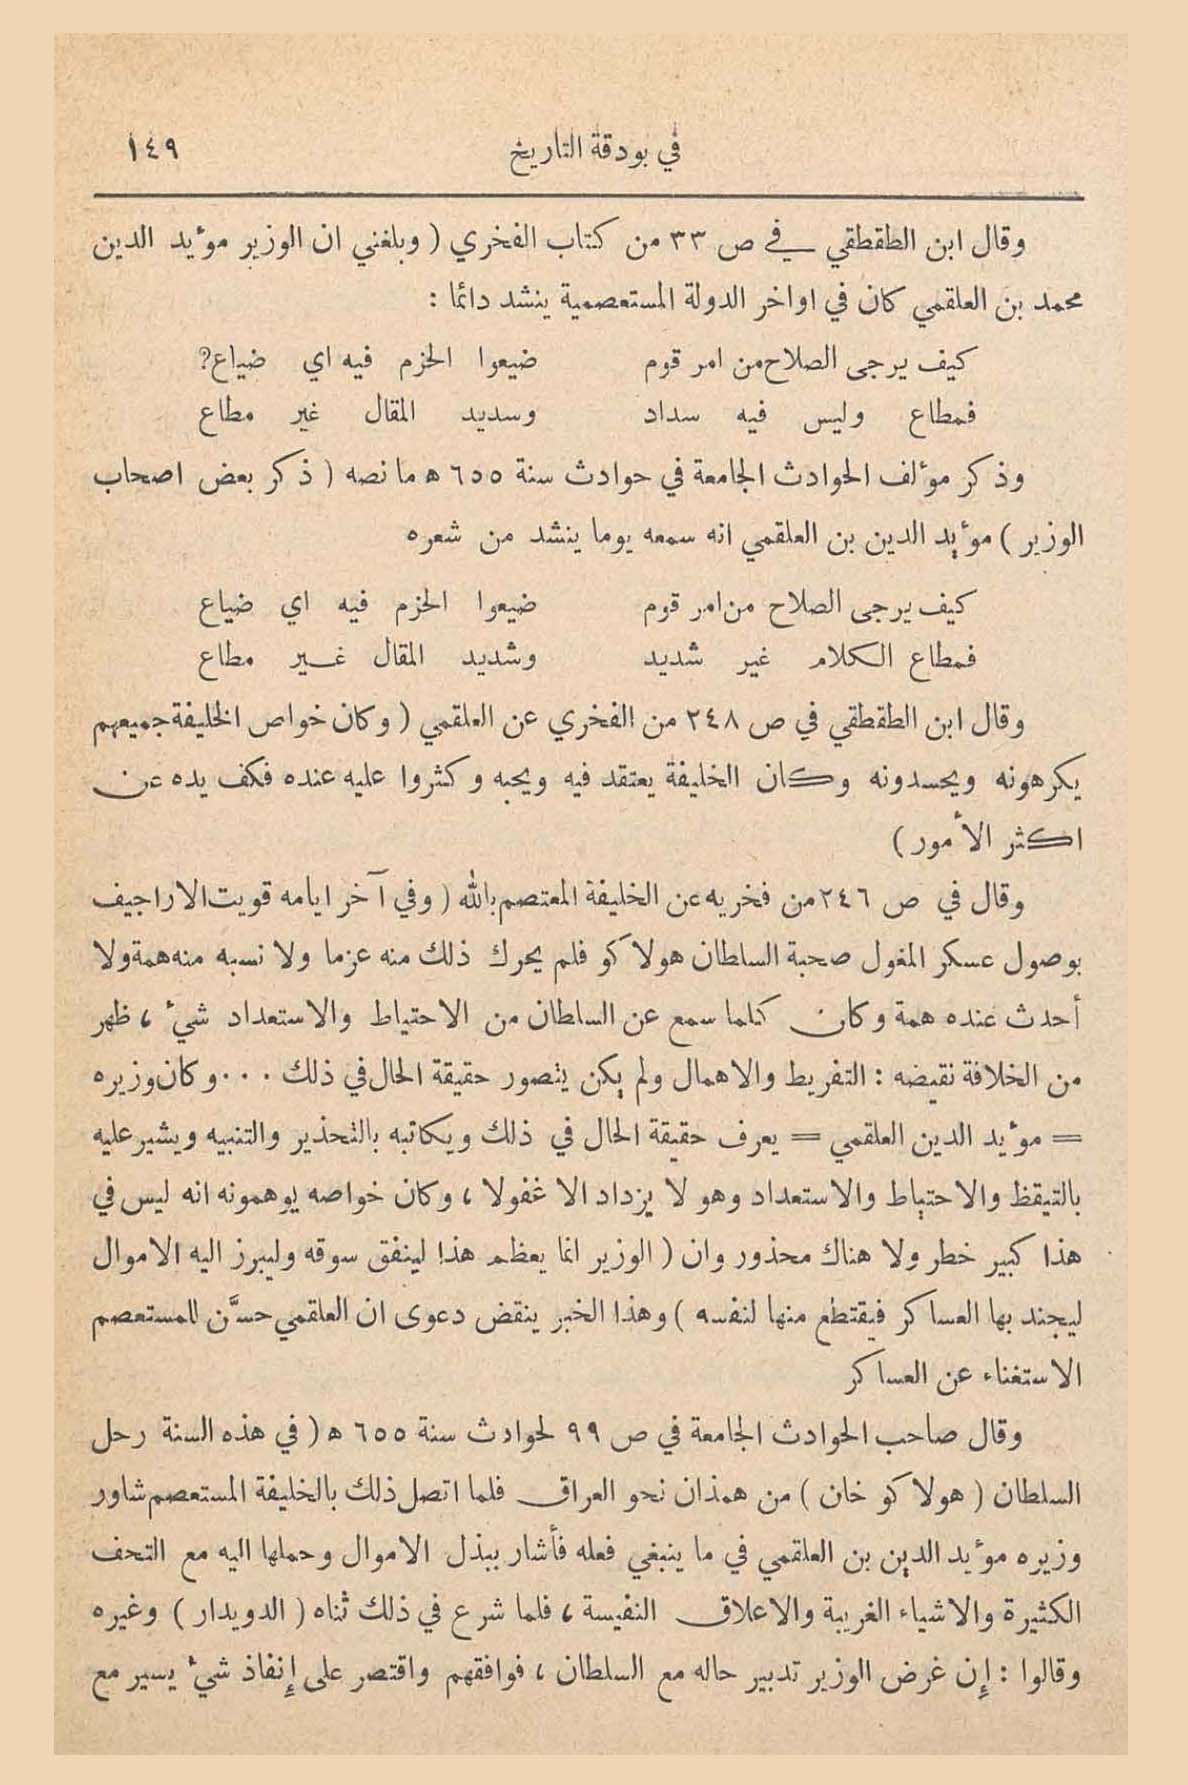 في بودقة التاريخ ١٤٩
وقال ابن الطقطقي في ص ٣٣ من كتاب الفخري ( وبلغني ان الوزير مؤيد الدين
محمد بن العلقمي كان في اواخر الدولة المستعصمية ينشد دائما :
كيف يرجى الصلاح من امر قوم ضيعوا الحزم فيه اي ضياع؟
فمطاع وليس فيه سداد وسديد المقال غير مطاع
وذكر مؤلف الحوادث الجامعة في حوادث سنة ٦٥٥ ه ما نصه ( ذكر بعض اصحاب
الوزير ) مؤيد الدين بن العلقمي انه سمعه يوما ينشد من شعره
كيف يرجى الصلاح من امر قوم ضيعوا الحزم فيه اي ضياع
فمطاع الكلام غير شديد وشديد المقال غير مطاع
وقال ابن الطقطقي في ص ٢٤٨ من الفخري عن العلقمي ( وكان خواص الخليفة جميعهم
يكرهونه ويحسدونه وكان الخليفة يعتقد فيه ويحبه وكثروا عليه عنده فكف يده عن
اكثر الأمور )
وقال في ص ٢٤٦ من فخريه عن الخليفة المعتصم بالله ( وفي آخر ايامه قويت الاراجيف
بوصول عسكر المغول صحبة السلطان هولاكو فلم يحرك ذلك منه عزما ولا نسبه منه همة ولا
أحدث عنده همة وكان كلما سمع عن السلطان من الاحتياط والاستعداد شيء ، ظهر
من الخلافة نقيضه : التفريط والاهمال ولم يكن يتصور حقيقة الحال في ذلك ... وكان وزيره
= مؤيد الدين العلقمي = يعرف حقيقة الحال في ذلك ويكاتبه بالتحذير والتنبيه ويشير عليه
بالتيقظ والاحتياط والاستعداد وهو لا يزداد الا غفولا ، وكان خواصه يوهمونه انه ليس في
هذا كبير خطر ولا هناك محذور وان ( الوزير انما يعظم هذا لينفق سوقه وليبرز اليه الاموال
ليجند بها العساكر فيقتطع منها لنفسه ) وهذا الخبر ينقض دعوى ان العلقمي حسَّن للمستعصم
الاستغناء عن العساكر
وقال صاحب الحوادث الجامعة في ص ٩٩ لحوادث سنة ٦٥٥ ه ( في هذه السنة رحل
السلطان ( هولاكو خان ) من همذان نحو العراق فلما اتصل ذلك بالخليفة المستعصم شاور
وزيره مؤيد الدين بن العلقمي في ما ينبغي فعله فأشار ببذل الاموال وحملها اليه مع التحف
الكثيرة والاشياء الغريبة والاعلاق النفيسة ، فلما شرع في ذلك ثناه ( الدويدار ) وغيره
وقالوا : إن غرض الوزير تدبير حاله مع السلطان ، فوافقهم واقتصر على إنفاذ شيء يسير مع